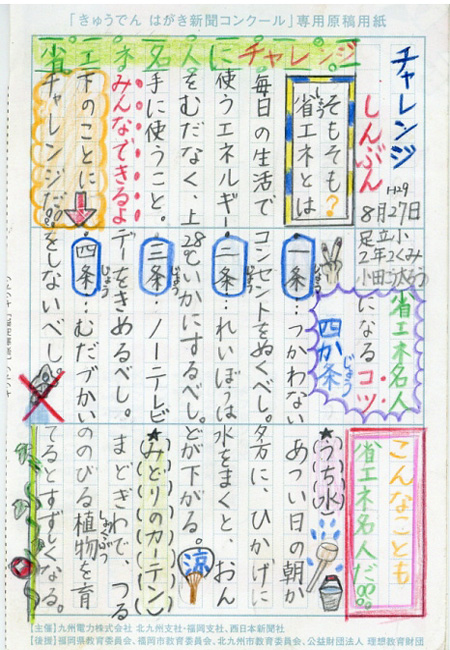 「きゅうでん はがき新聞コンクール」専用原稿用紙
チャレンジ
しんぶん
8月27日
足立小
2年2くみ
省エネ名人にチャレンジ
そもそも?
省エネとは
毎日の生活で
使うエネルギー
をむだなく、上
手に使うこと。
みんなできるよ
下のことに
チャレンジだ!
省エネ名人
になるコツ
四か条
じょう
一条…つかわない
じょう
コンセントをぬくべし。
二条…れいぼうは
じょう
28℃いかにするべし。
三条…ノーテレビ
じょう
デーをきめるべし。
四条…むだづかい
じょう
をしないべし。
こんなことも
省エネ名人だ!!
★うち水
あつい日の朝か
夕方に、ひかげに
水をまくと、おん
どが下がる。
涼
★みどりのカーテン
まどぎわで、つる
ののびる植物を育
しょくぶつ
てるとすずしくなる。
【主催】九州電力株式会社 北九州支社・福岡支社、西日本新聞社
【後援】福岡県教育委員会、福岡市教育委員会、北九州市教育委員会、公益財団法人 理想教育財団